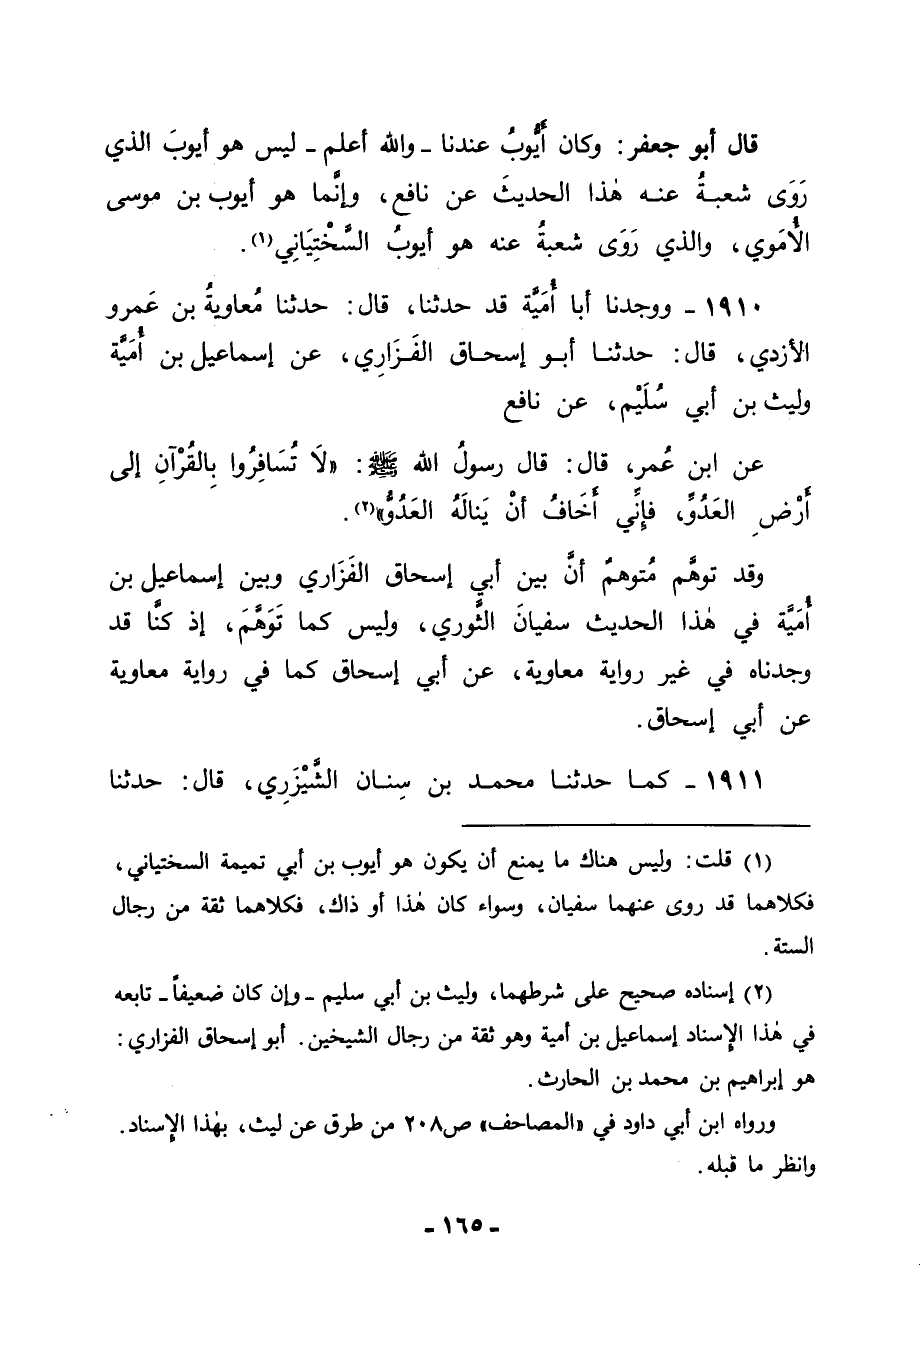 قال أبو جعفر: وكان أَيُّوبُ عندنا ـ والله أعلم ـ ليس هو أيوبَ الذي
رَوَى شعبـةُ عنـه هٰذا الحديثَ عن نافع، وإنَّما هو أيوب بن موسى
الأُمَوي، والذي رَوَى شعبةُ عنه هو أيوبُ السَّخْتِيَانِي(١).
١٩١٠ ـ ووجدنا أبا أُمَيَّة قد حدثنا، قال: حدثنا مُعاويةُ بن عَمرو
الأزدي، قال: حدثنـا أبـو إسحـاق الفَـزَارِي، عن إسماعيل بن أُمَيَّة
وليث بن أبي سُلَيْم، عن نافع
عن ابن عُمر، قال: قال رسولُ الله ﷺ: «لَا تُسَافِرُوا بِالقُرْآنِ إلى
أَرْضِ العَدُوِّ، فإنِّي أَخَافُ أنْ يَنالَهُ العَدُوُّ»(٢).
وقد توهَّم مُتوهمٌ أنَّ بين أبي إسحاق الفَزَاري وبين إسماعيل بن
أُمَيَّة في هٰذا الحديث سفيانَ الثَّوري، وليس كما تَوَهَّمَ، إذ كنَّا قد
وجدناه في غير رواية معاوية، عن أبي إسحاق كما في رواية معاوية
عن أبي إسحاق.
١٩١١ ـ كمـا حدثنـا محمـد بن سِنـان الشَّيْزَرِي، قال: حدثنا
(١) قلت: وليس هناك ما يمنع أن يكون هو أيوب بن أبي تميمة السختياني،
فكلاهما قد روى عنهما سفيان، وسواء كان هٰذا أو ذاك، فكلاهما ثقة من رجال
الستة.
(٢) إسناده صحيح على شرطهما، وليث بن أبي سليم ـ وإن كان ضعيفاً ـ تابعه
في هٰذا الإسناد إسماعيل بن أمية وهو ثقة من رجال الشيخين. أبو إسحاق الفزاري:
هو إبراهيم بن محمد بن الحارث.
ورواه ابن أبي داود في «المصاحف» ص٢٠٨ من طرق عن ليث، بهٰذا الإسناد.
وانظر ما قبله.
ـ ١٦٥ ـ